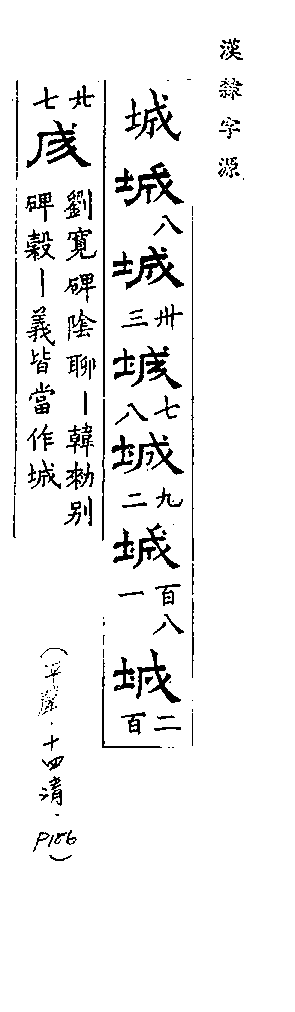 漢隸字源
城 城八 城卅三 城七八 城九二 城百八一 城二百
廿七 成 劉寬碑陰聊丨韓勑别
碑穀丨義皆當作城
(平聲．十四清．P186)